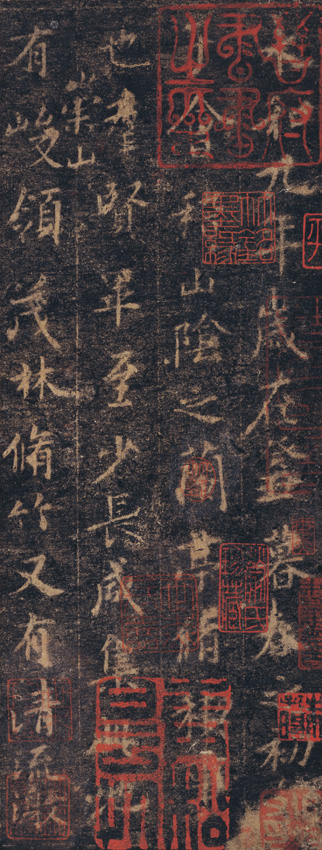 永和九年歲在癸丑暮春之初
會稽山陰之蘭亭脩稧
也羣賢畢至少長咸集此地
有崇山峻領茂林脩竹又有清流激